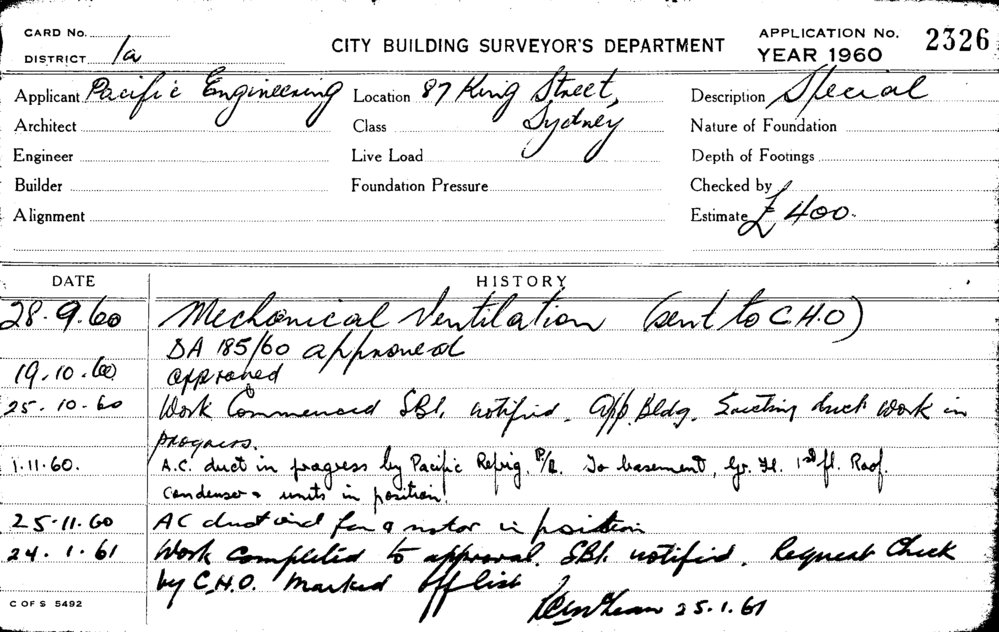 CARD No.
DISTRICT 1a
CITY BUILDING SURVEYOR'S DEPARTMENT
APPLICATION No. 2326
YEAR 1960
Applicant Pacific Engineering Location 87 King Street, Description Special
Architect Class Sydney Nature of Foundation
Engineer Live Load Depth of Footings
Builder Foundation Pressure Checked by
Alignment Estimate £ 400.
DATE HISTORY
28.9.60 Mechanical Ventilation (sent to C.H.O)
DA 185/60 approved
19.10.60 approved
25.10.60 Work Commenced SBI. notified. App. Bldg. duct work in
progress.
1.11.60. A.C. duct in progress by Pacific Refrig. P/L. To basement, Gr. Fl. 1st fl. Roof.
Condenser & units in position.
25.11.60 AC duct and fan & motor in position
24.1.61 Work completed to approval. SBI. notified. Request Check
by C.H.O. Marked off list
25.1.61
C OF S 5492